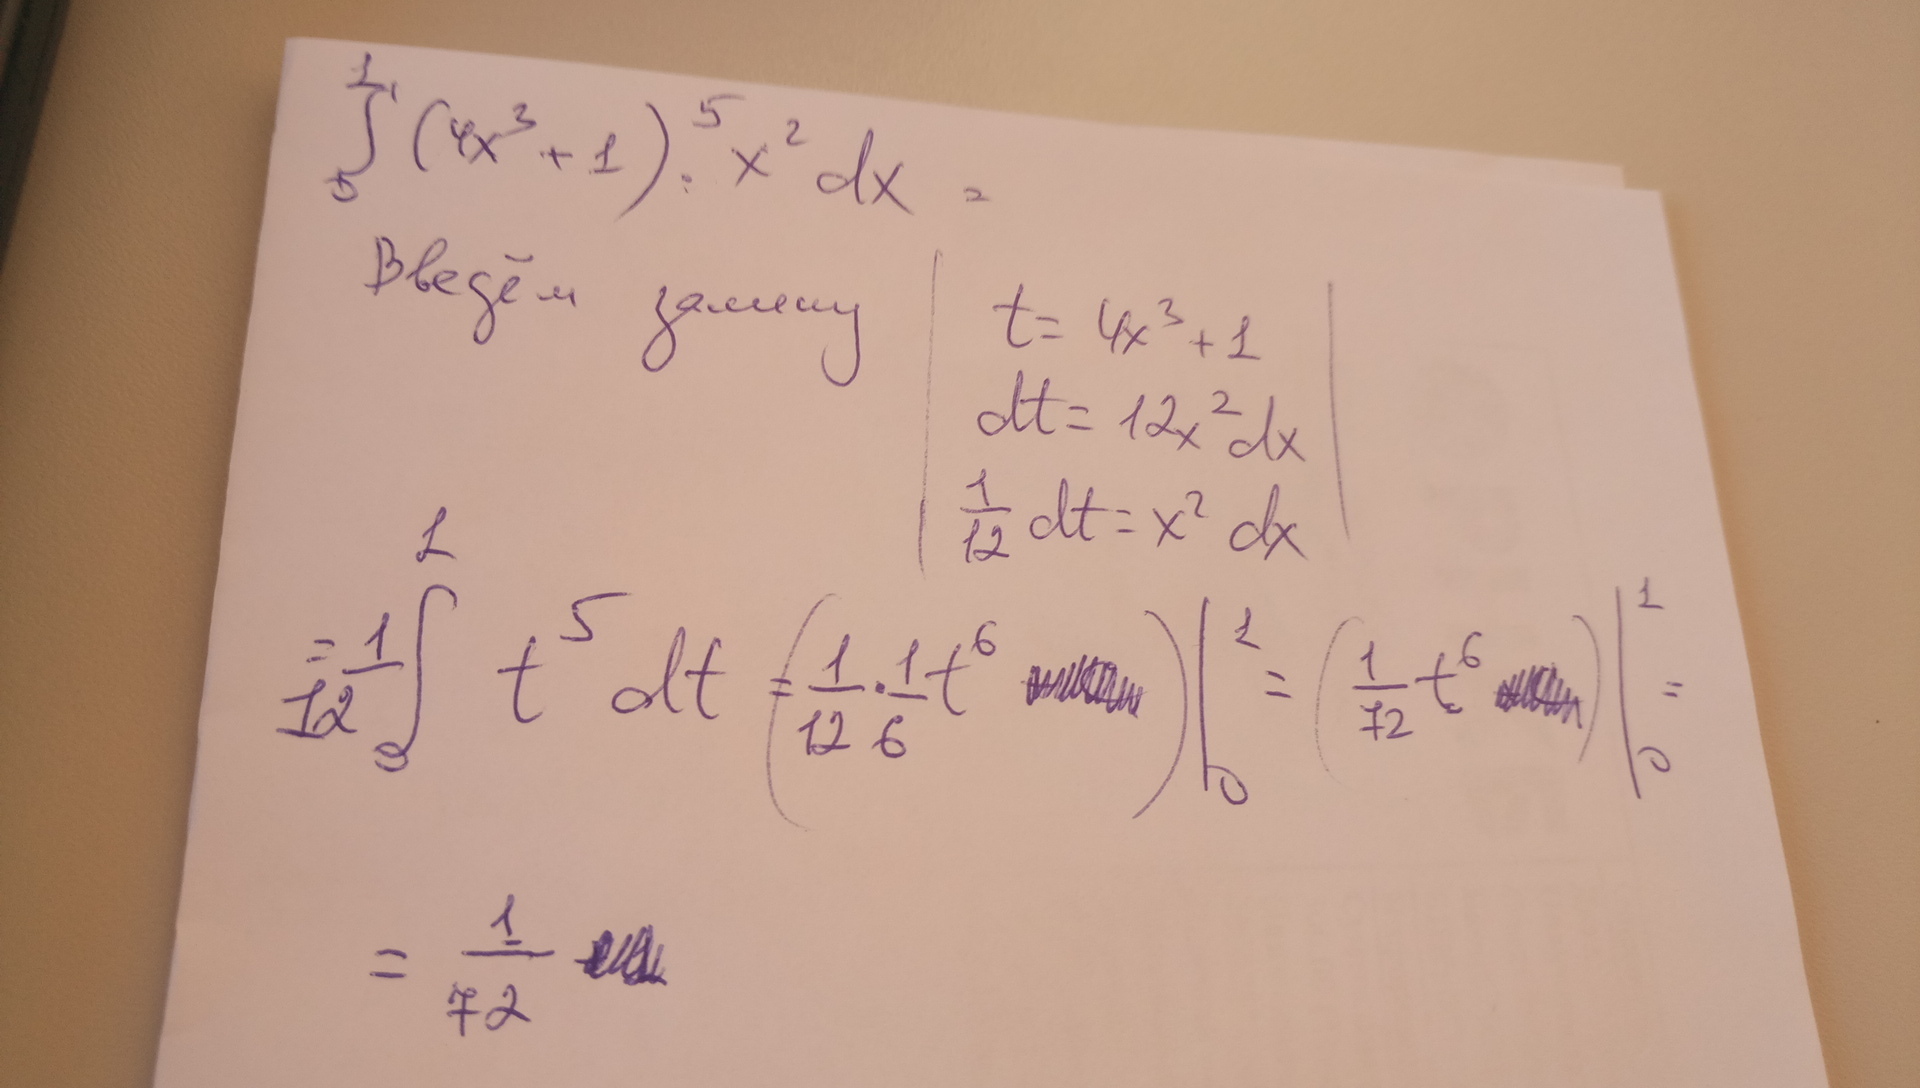 ∫₀¹ (4x³ + 1)⁵ · x² dx =
Введём замену | t = 4x³ + 1
dt = 12x² dx
1/12 dt = x² dx |
= 1/12 ∫₀¹ t⁵ dt = (1/12 · 1/6 t⁶) |₀¹ = (1/72 t⁶) |₀¹ =
= 1/72